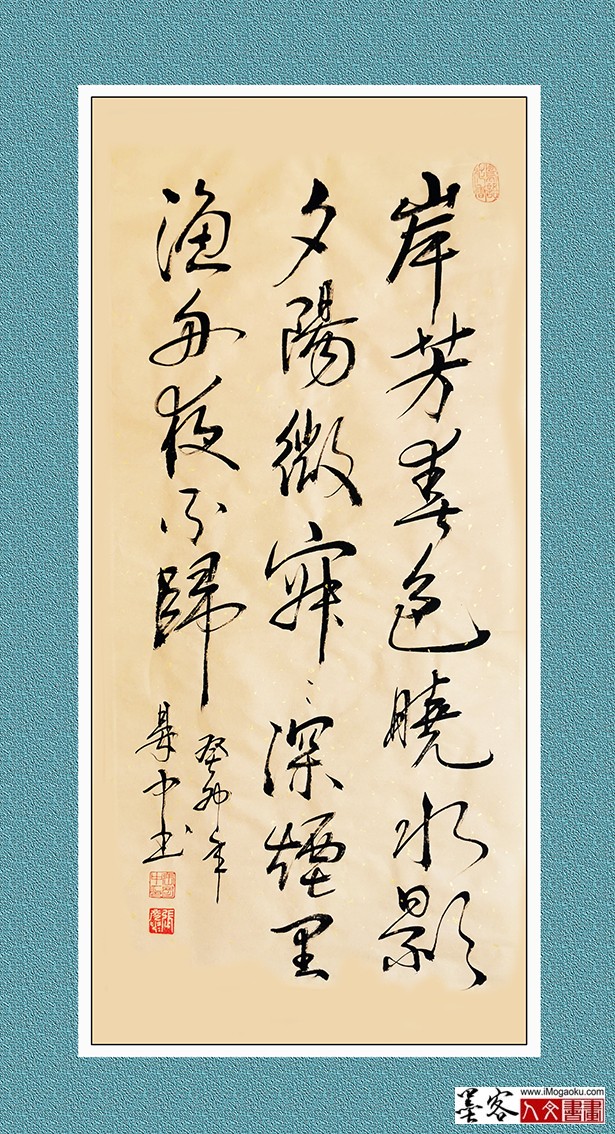 岸芳春色曉水影
夕陽微寂〻深煙里
漁舟夜不歸
癸卯年
中书
www.iMogaoku.com
墨客
人文書畫